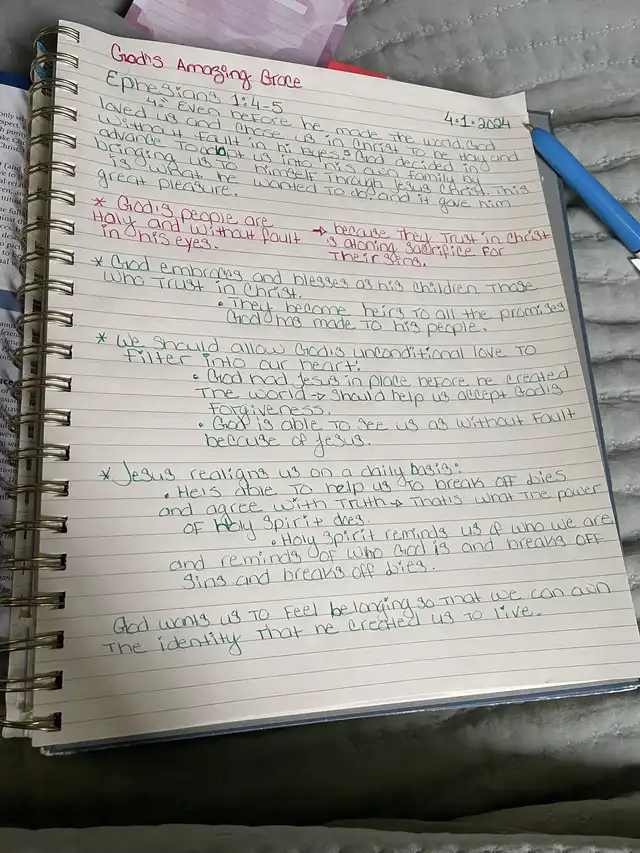 God's Amazing Grace
Ephesians 1:4-5
4.1.2024
4 Even before he made the world, God
loved us and chose us in Christ to be Holy and
without fault in his eyes. 5 God decided in
advance To adopt us into his own family by
bringing us to himself Through Jesus Christ. This
is what he wanted To do, and it gave him
great pleasure.
* God's people are
Holy and without fault
in his eyes.
→ because They Trust in Christ
is atoning sacrifice For
Their sins.
* God embraces and blesses as his children Those
who Trust in Christ.
• They become heirs To all the promises
God has made To his people.
* We should allow God's unconditional love To
Filter into our heart:
• God had Jesus in place before he created
The world → should help us accept God's
Forgiveness.
• God is able To see us as without Fault
because of Jesus.
* Jesus realigns us on a daily basis:
• He is able To help us To break off lies
and agree with Truth → That's what The power
of Holy Spirit does.
• Holy Spirit reminds us of who we are
and reminds of who God is and breaks off
Sins and breaks off lies.
God wants us To Feel belonging so That we can own
The identity That he created us To live.